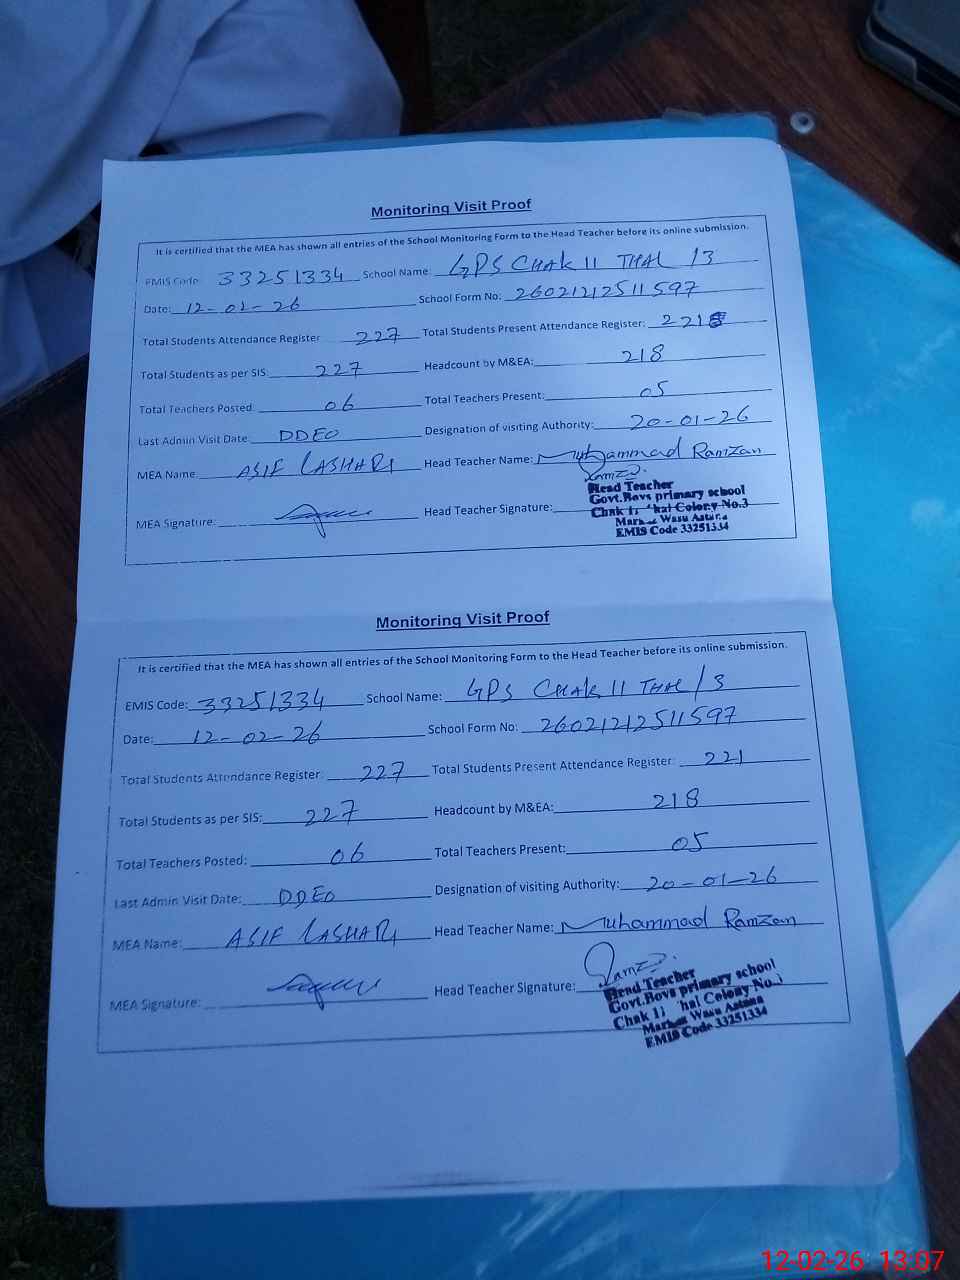 Monitoring Visit Proof
It is certified that the MEA has shown all entries of the School Monitoring Form to the Head Teacher before its online submission.
EMIS Code: 33251334 School Name: GPS CHAK 11 THAL /3
Date: 12-02-26 School Form No: 26021212511597
Total Students Attendance Register 227 Total Students Present Attendance Register: 221
Total Students as per SIS: 227 Headcount by M&EA: 218
Total Teachers Posted: 06 Total Teachers Present: 05
Last Admin Visit Date: DDEO Designation of visiting Authority: 20-01-26
MEA Name: ASIF LASHARI Head Teacher Name: Muhammad Ramzan
MEA Signature: Head Teacher Signature: Ramzan
Head Teacher
Govt.Boys primary school
Chak 11 Thal Colony No.3
Markaz Wasu Astana
EMIS Code 33251334
Monitoring Visit Proof
It is certified that the MEA has shown all entries of the School Monitoring Form to the Head Teacher before its online submission.
EMIS Code: 33251334 School Name: GPS CHAK 11 THAL /3
Date: 12-02-26 School Form No: 26021212511597
Total Students Attendance Register: 227 Total Students Present Attendance Register: 221
Total Students as per SIS: 227 Headcount by M&EA: 218
Total Teachers Posted: 06 Total Teachers Present: 05
Last Admin Visit Date: DDEO Designation of visiting Authority: 20-01-26
MEA Name: ASIF LASHARI Head Teacher Name: Muhammad Ramzan
MEA Signature: Head Teacher Signature: Ramzan
Head Teacher
Govt.Boys primary school
Chak 11 Thal Colony No.3
Markaz Wasu Astana
EMIS Code 33251334
12-02-26 13:07